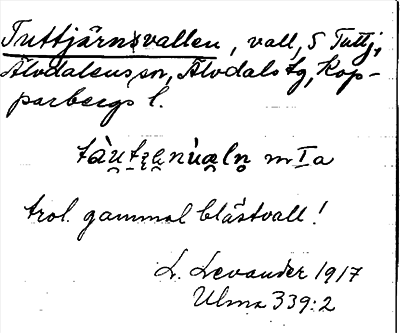 Tuttjärnsvallen, vall, S Tuttj,
Älvdalens sn, Älvdals tg, Kop-
parbergs l.
m I a
trol. gammal blästvall!
L. Levander 1917
Ulma 339:2